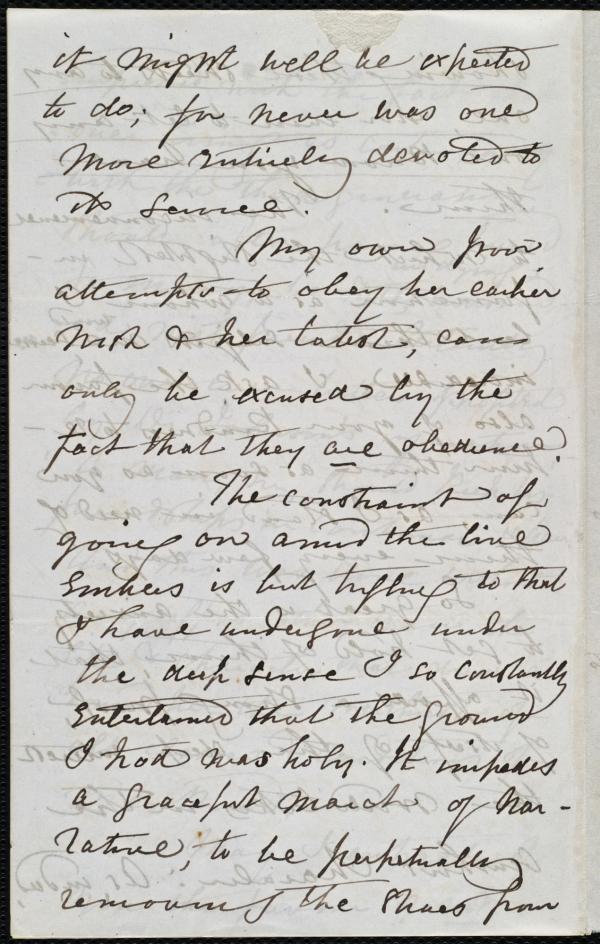 it might well be expected
to do; for never was one
more entirely devoted to
its service.
My own poor
attempts to obey her earlier
wish & her latest, can
only be excused by the
fact that they are obedience.
The constraint of
going on amid the live
embers is but trifling to that
I have undergone under
the deep sense I so constantly
entertained that the ground
I trod was holy. It impedes
a graceful march of nar-
rative, to be perpetually
removing the shoes from